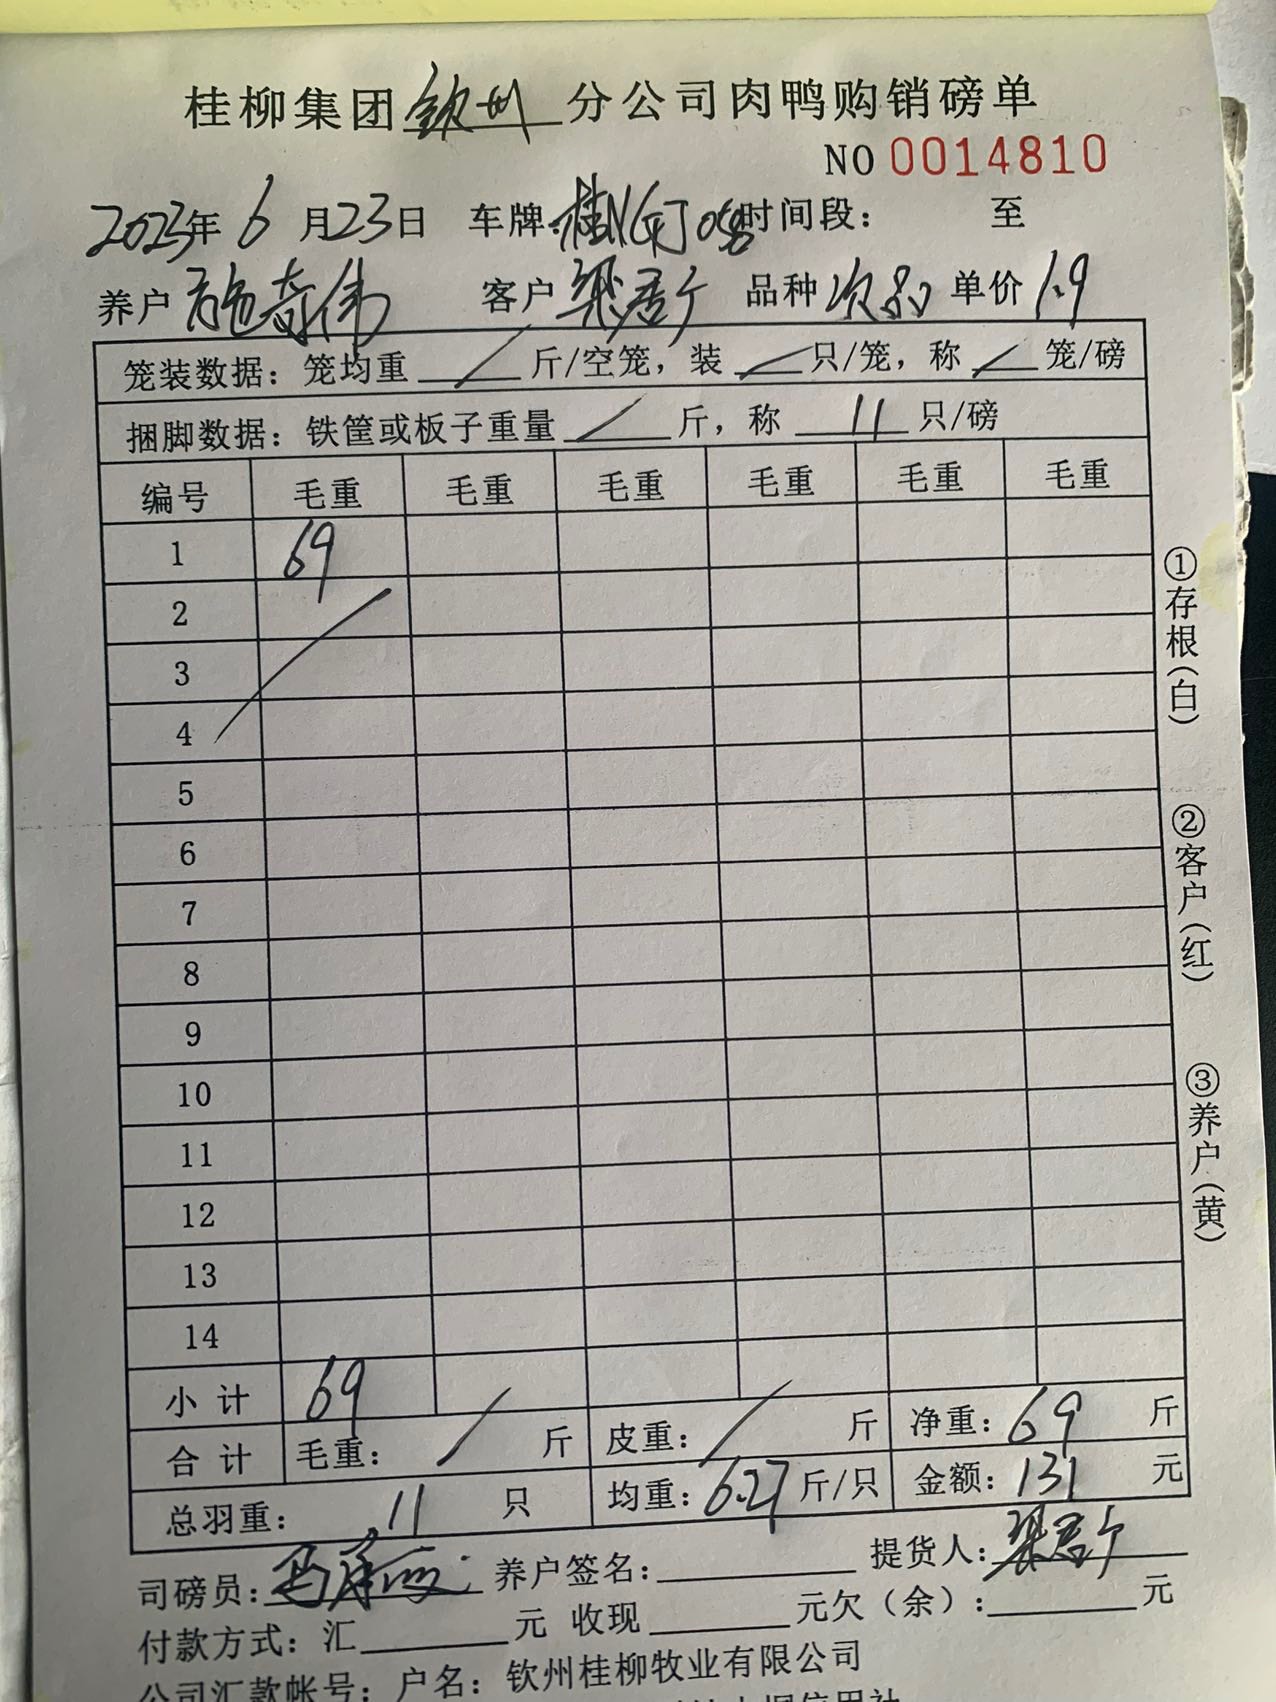 桂柳集团钦州分公司肉鸭购销磅单
NO 0014810
2023年6月23日 车牌: 时间段: 至
养户 施奇伟 客户 梁 品种 次品 单价 1.9
笼装数据: 笼均重 / 斤/空笼, 装 / 只/笼, 称 / 笼/磅
捆脚数据: 铁筐或板子重量 / 斤, 称 11 只/磅
编号 毛重 毛重 毛重 毛重 毛重 毛重
1 69
2
3
4
5
6
7
8
9
10
11
12
13
14
小计 69
合计 毛重: / 斤 皮重: / 斤 净重: 69 斤
总羽重: 11 只 均重: 6.27 斤/只 金额: 131 元
司磅员: 养户签名: 提货人: 梁
付款方式: 汇 元 收现 元欠(余): 元
公司汇款帐号: 户名: 钦州桂柳牧业有限公司
①存根(白)
②客户(红)
③养户(黄)